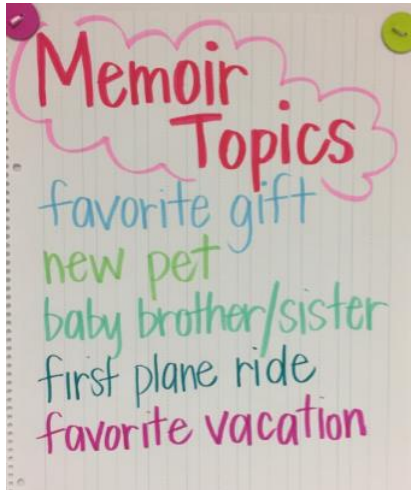 Memoir
Topics
favorite gift
new pet
baby brother/sister
first plane ride
favorite vacation